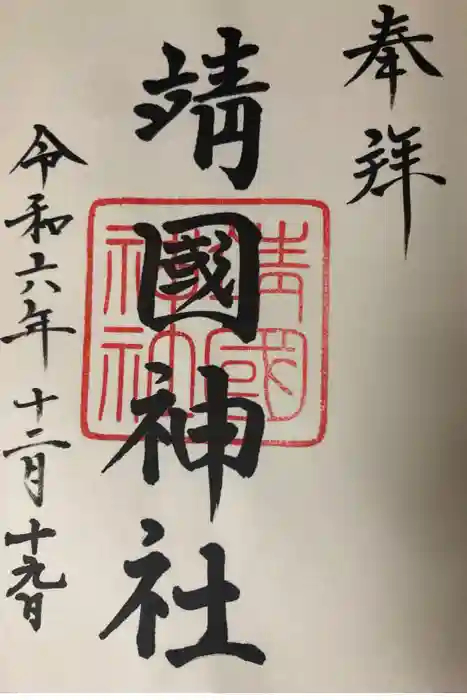 奉拝
靖國神社
靖國神社
令和六年 十二月 十九日